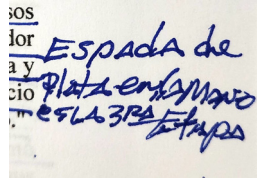 sos
dor
a y
cio
."
Espada de
Plata en la mano
es LA 3RA Etapa